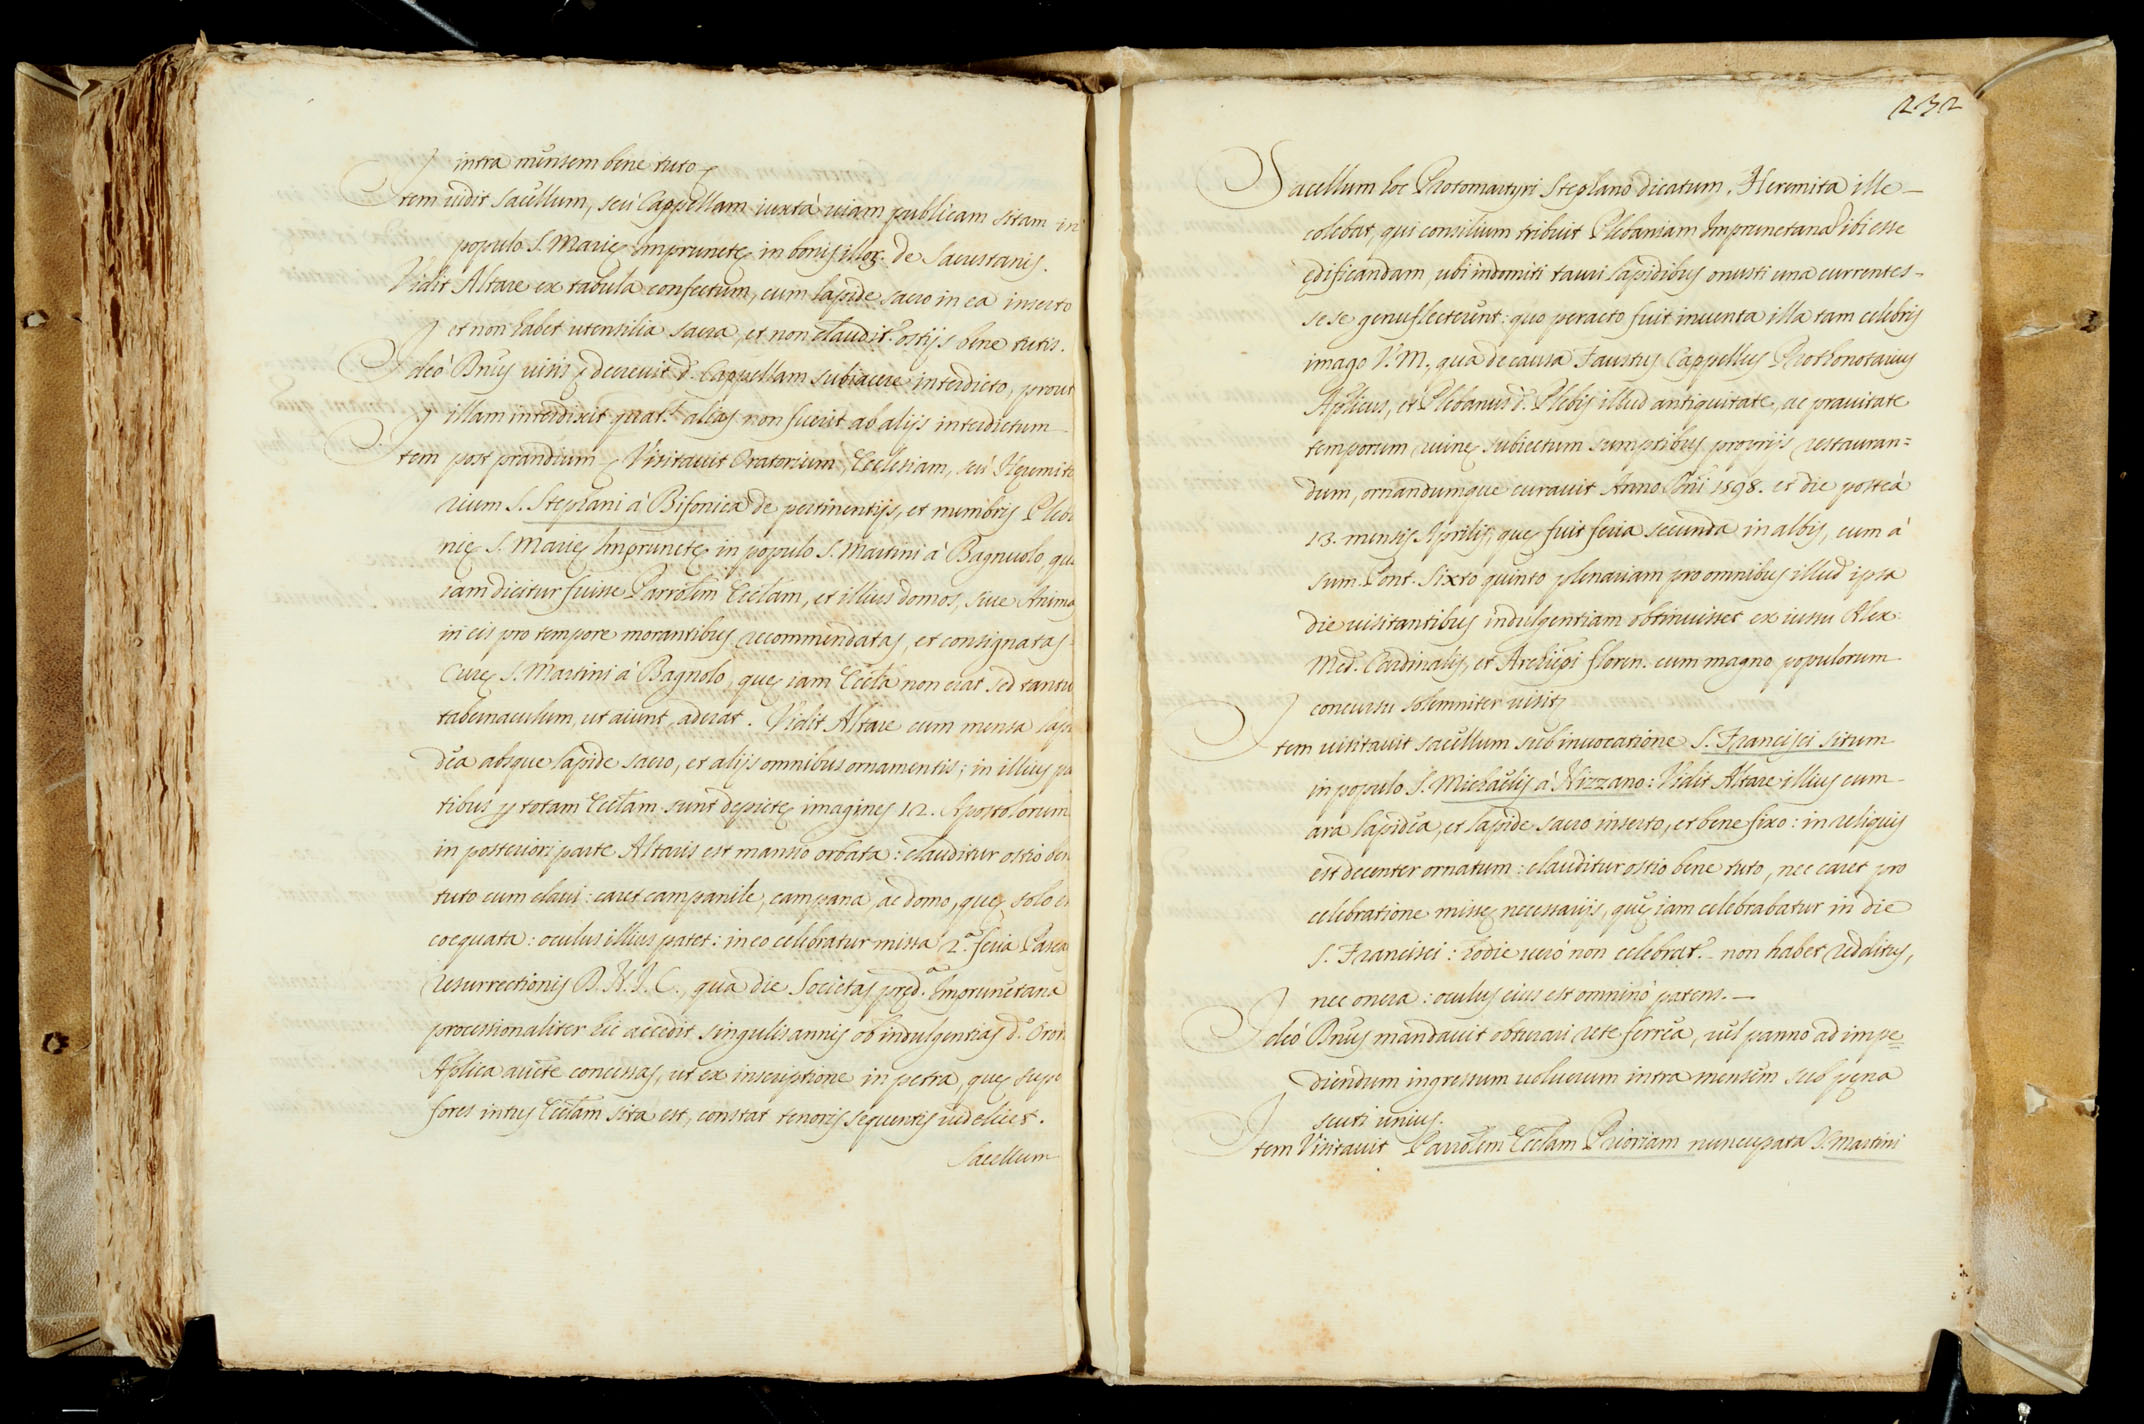 intra mensem bene tuto
Item uidit sacellum, seù Cappellam iuxtà uiam publicam sitam in
populo S. Marię Imprunetę in bonis illoꝝ. de Sacustanis.
Vidit Altare ex tabula confectum, cum lapide sacro in ea inserto
et non habet utensilia sacra, et non claudit.r ostijs bene tutis.
Ideò D.nus uisis decreuit d. Cappellam subiacere interdicto, prout
illam interdixit quat.s alias non fuerit ab alijs interdictum
Item post prandium Visitauit Oratorium, Ecclesiam, seù Heremito
rium S. Stephani à Bifonica de pertinentijs, et membris Pleba
nię S. Marię Imprunetę in populo S. Martini à Bagnuolo, quę
iam dicitur fuisse Parrōlem Ecclām, et illius domos, siue Animas
in eis pro tempore morantibus recommendatas, et consignatas
Curę S. Martini à Bagnolo, quę iam Ecclā non erat sed tantu
tabernaculum, ut aiunt, aderat. Vidit Altare cum mensa lapi
dea absque lapide sacro, et alijs omnibus ornamentis; in illius pa
tibus ꝑ totam Ecclām sunt depictę imagines 12. Apostolorum
in posteriori parte Altaris est mansio orbata: clauditur ostio ben
tuto cum claui: caret campanile, campana, ac domo, quę solo e
coequata: oculus illius patet: in eo celebratur missa 2.a feria Pasca
resurrectionis D. N. J. C., qua die Societas pręd.a Imprunetana
processionaliter hic accedit singulis annis ob indulgentias d.o Oror.
Aplica aucte concessas, ut ex inscriptione in petra, quę sup
fores intus Ecclām sita est, constat tenoris sequentis uidelicet.
Sacellum
232
Sacellum hoc Protomartyri Stephano dicatum, Heremita ille
colebat, qui consilium tribuit Plebaniam Imprunetanā ibi esse
ędificandam, ubi indomiti tauri lapidibus onusti una currentes
sese genuflecterunt: quo peracto fuit inuenta illa tam celebris
imago V. M., qua de causa Faustus Cappellus Prothonotarius
Aplicus, et Plebanus d. Plebis illud antiquitate, ac prauitate
temporum ruinę subiectum sumptibus proprijs restauran=
dum, ornandumque curauit Anno Dn̄i 1598. et die posteà
13. mensis Aprilis, quę fuit feria secunda in albis, cum à
sum. Pont. Sixto quinto plenariam pro omnibus illud ipsa
die uisitantibus indulgentiam obtinuisset ex iussu Alex.
Med. Cardinalis, et Archiepi Floren. cum magno populorum
concursu solemniter uisit
Item uisitauit sacellum sub inuocatione S. Francisci situm
in populo S. Michaelis à Nizzano: Vidit Altare illius cum
ara lapidea, et lapide sacro inserto, et bene fixo: in reliquis
est decenter ornatum: clauditur ostio bene tuto, nec caret pro
celebratione missę necessarijs, quę iam celebrabatur in die
S. Francisci: hodie uerò non celebrat.r non habet redditus,
nec onera: oculus eius est omninò patens.
Ideò D.nus mandauit obturari rete ferrea, uel panno ad impe=
diendum ingressum uolucrum intra mensem sub pęna
scuti unius.
Item Visitauit Parrōlem Ecclām Prioriam nuncupata S. Martini